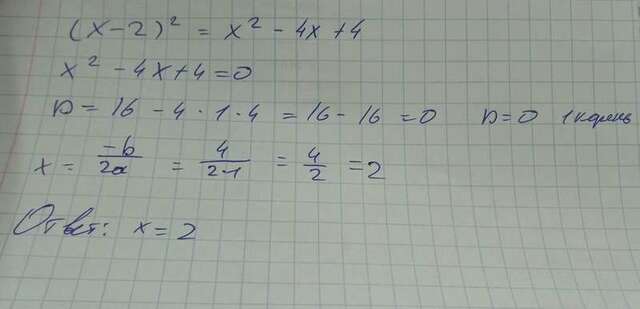 (x-2)² = x² - 4x + 4
x² - 4x + 4 = 0
D = 16 - 4 · 1 · 4 = 16 - 16 = 0 D = 0 1 корень
x = -b/2a = 4/2·1 = 4/2 = 2
Ответ: x = 2